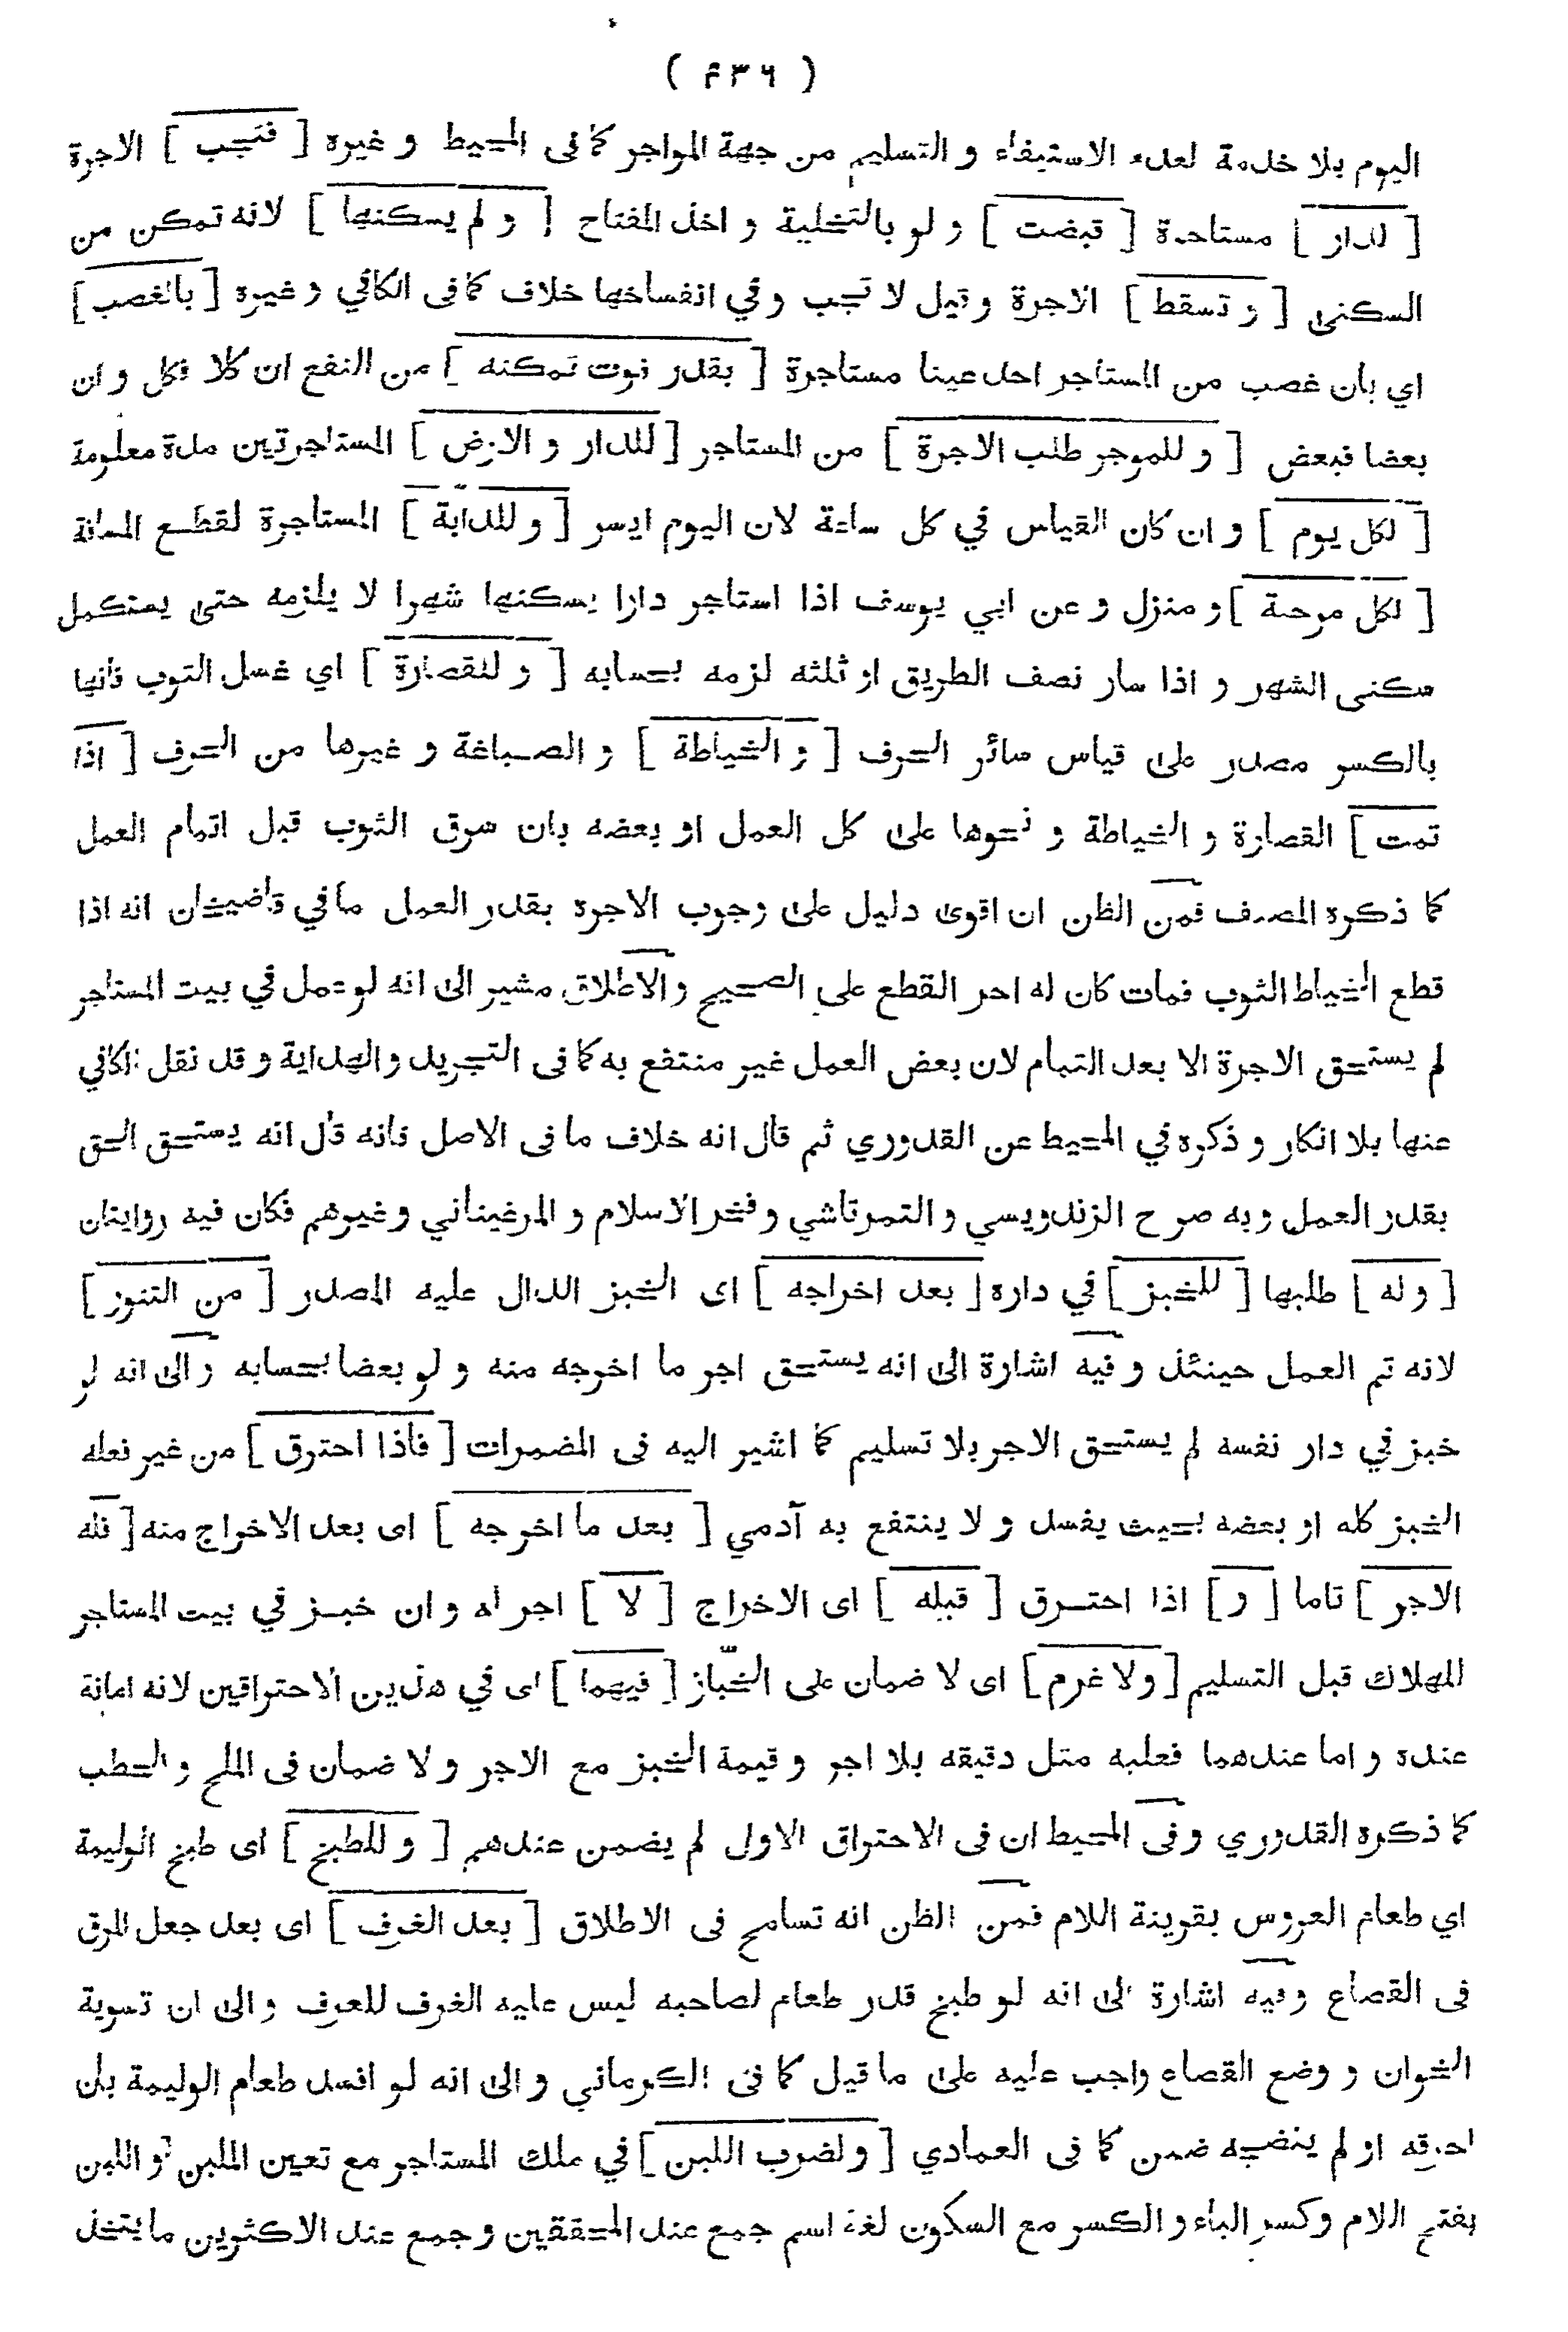 ( ۴۳۶ )
اليوم بلا خدمة لعدم الاستيفاء و التسليم من جهة المواجر كما فى المحيط و غيره [ فتجب ] الاجرة
[ لدار ] مستاجرة [ قبضت ] و لو بالتخلية و اخذ المفتاح [ و لم يسكنها ] لانه تمكن من
السكنى [ و تسقط ] الاجرة و قيل لا تجب و في انفساخها خلاف كما فى الكافي و غيره [ بالغصب ]
اي بان غصب من المستاجر احد عينا مستاجرة [ بقدر فوت تمكنه ] من النفع ان كلا فكل و ان
بعضا فبعض [ و للموجر طلب الاجرة ] من المستاجر [ للدار و الارض ] المستاجرتين مدة معلومة
[ لكل يوم ] و ان كان القياس في كل ساعة لان اليوم ايسر [ و للدابة ] المستاجرة لقطع المسافة
[ لكل مرحلة ] و منزل و عن ابي يوسف اذا استاجر دارا يسكنها شهرا لا يلزمه حتى يستكمل
سكنى الشهر و اذا سار نصف الطريق او ثلثه لزمه بحسابه [ و للقصارة ] اي غسل الثوب فانها
بالكسر مصدر على قياس سائر الحرف [ و الخياطة ] و الصباغة و غيرها من الحرف [ اذا
تمت ] القصارة و الخياطة و نحوها على كل العمل او بعضه بان سرق الثوب قبل اتمام العمل
كما ذكره المصنف فمن الظن ان اقوى دليل على وجوب الاجرة بقدر العمل ما في قاضيخان انه اذا
قطع الخياط الثوب فمات كان له اجر القطع على الصحيح و الاطلاق مشير الى انه لو عمل في بيت المستاجر
لم يستحق الاجرة الا بعد التمام لان بعض العمل غير منتفع به كما فى التجريد و الهداية و قد نقل الكافي
عنها بلا انكار و ذكره في المحيط عن القدوري ثم قال انه خلاف ما فى الاصل فانه قال انه يستحق الحق
بقدر العمل و به صرح الزندويسي و التمرتاشي و فخر الاسلام و المرغيناني و غيرهم فكان فيه روايتان
[ و له ] طلبها [ للخبز ] في داره [ بعد اخراجه ] اى الخبز الدال عليه المصدر [ من التنور ]
لانه تم العمل حينئذ و فيه اشارة الى انه يستحق اجر ما اخرجه منه و لو بعضا بحسابه و الى انه لو
خبز في دار نفسه لم يستحق الاجر بلا تسليم كما اشير اليه فى المضمرات [ فاذا احترق ] من غير فعله
الخبز كله او بعضه بحيث يفسد و لا ينتفع به آدمي [ بعد ما اخرجه ] اى بعد الاخراج منه [ فله
الاجر ] تاما [ و ] اذا احترق [ قبله ] اى الاخراج [ لا ] اجر له و ان خبز في بيت المستاجر
للهلاك قبل التسليم [ و لا غرم ] اى لا ضمان على الخبّاز [ فيهما ] اى في هذين الاحتراقين لانه امانة
عنده و اما عندهما فعليه مثل دقيقه بلا اجر و قيمة الخبز مع الاجر و لا ضمان فى الملح و الحطب
كما ذكره القدوري و فى المحيط ان فى الاحتراق الاول لم يضمن عندهم [ و للطبخ ] اى طبخ الوليمة
اي طعام العروس بقرينة اللام فمن الظن انه تسامح فى الاطلاق [ بعد الغرف ] اى بعد جعل المرق
فى القصاع و فيه اشارة الى انه لو طبخ قدر طعام لصاحبه ليس عليه الغرف للعرف و الى ان تسوية
الخوان و وضع القصاع واجب عليه على ما قيل كما فى الكرماني و الى انه لو افسد طعام الوليمة بان
احرقه او لم ينضجه ضمن كما فى العمادي [ و لضرب اللبن ] في ملك المستاجر مع تعيين الملبن و اللبن
بفتح اللام و كسر الباء و الكسر مع السكون لغة اسم جمع عند المحققين و جمع عند الاكثرين ما يتخذ